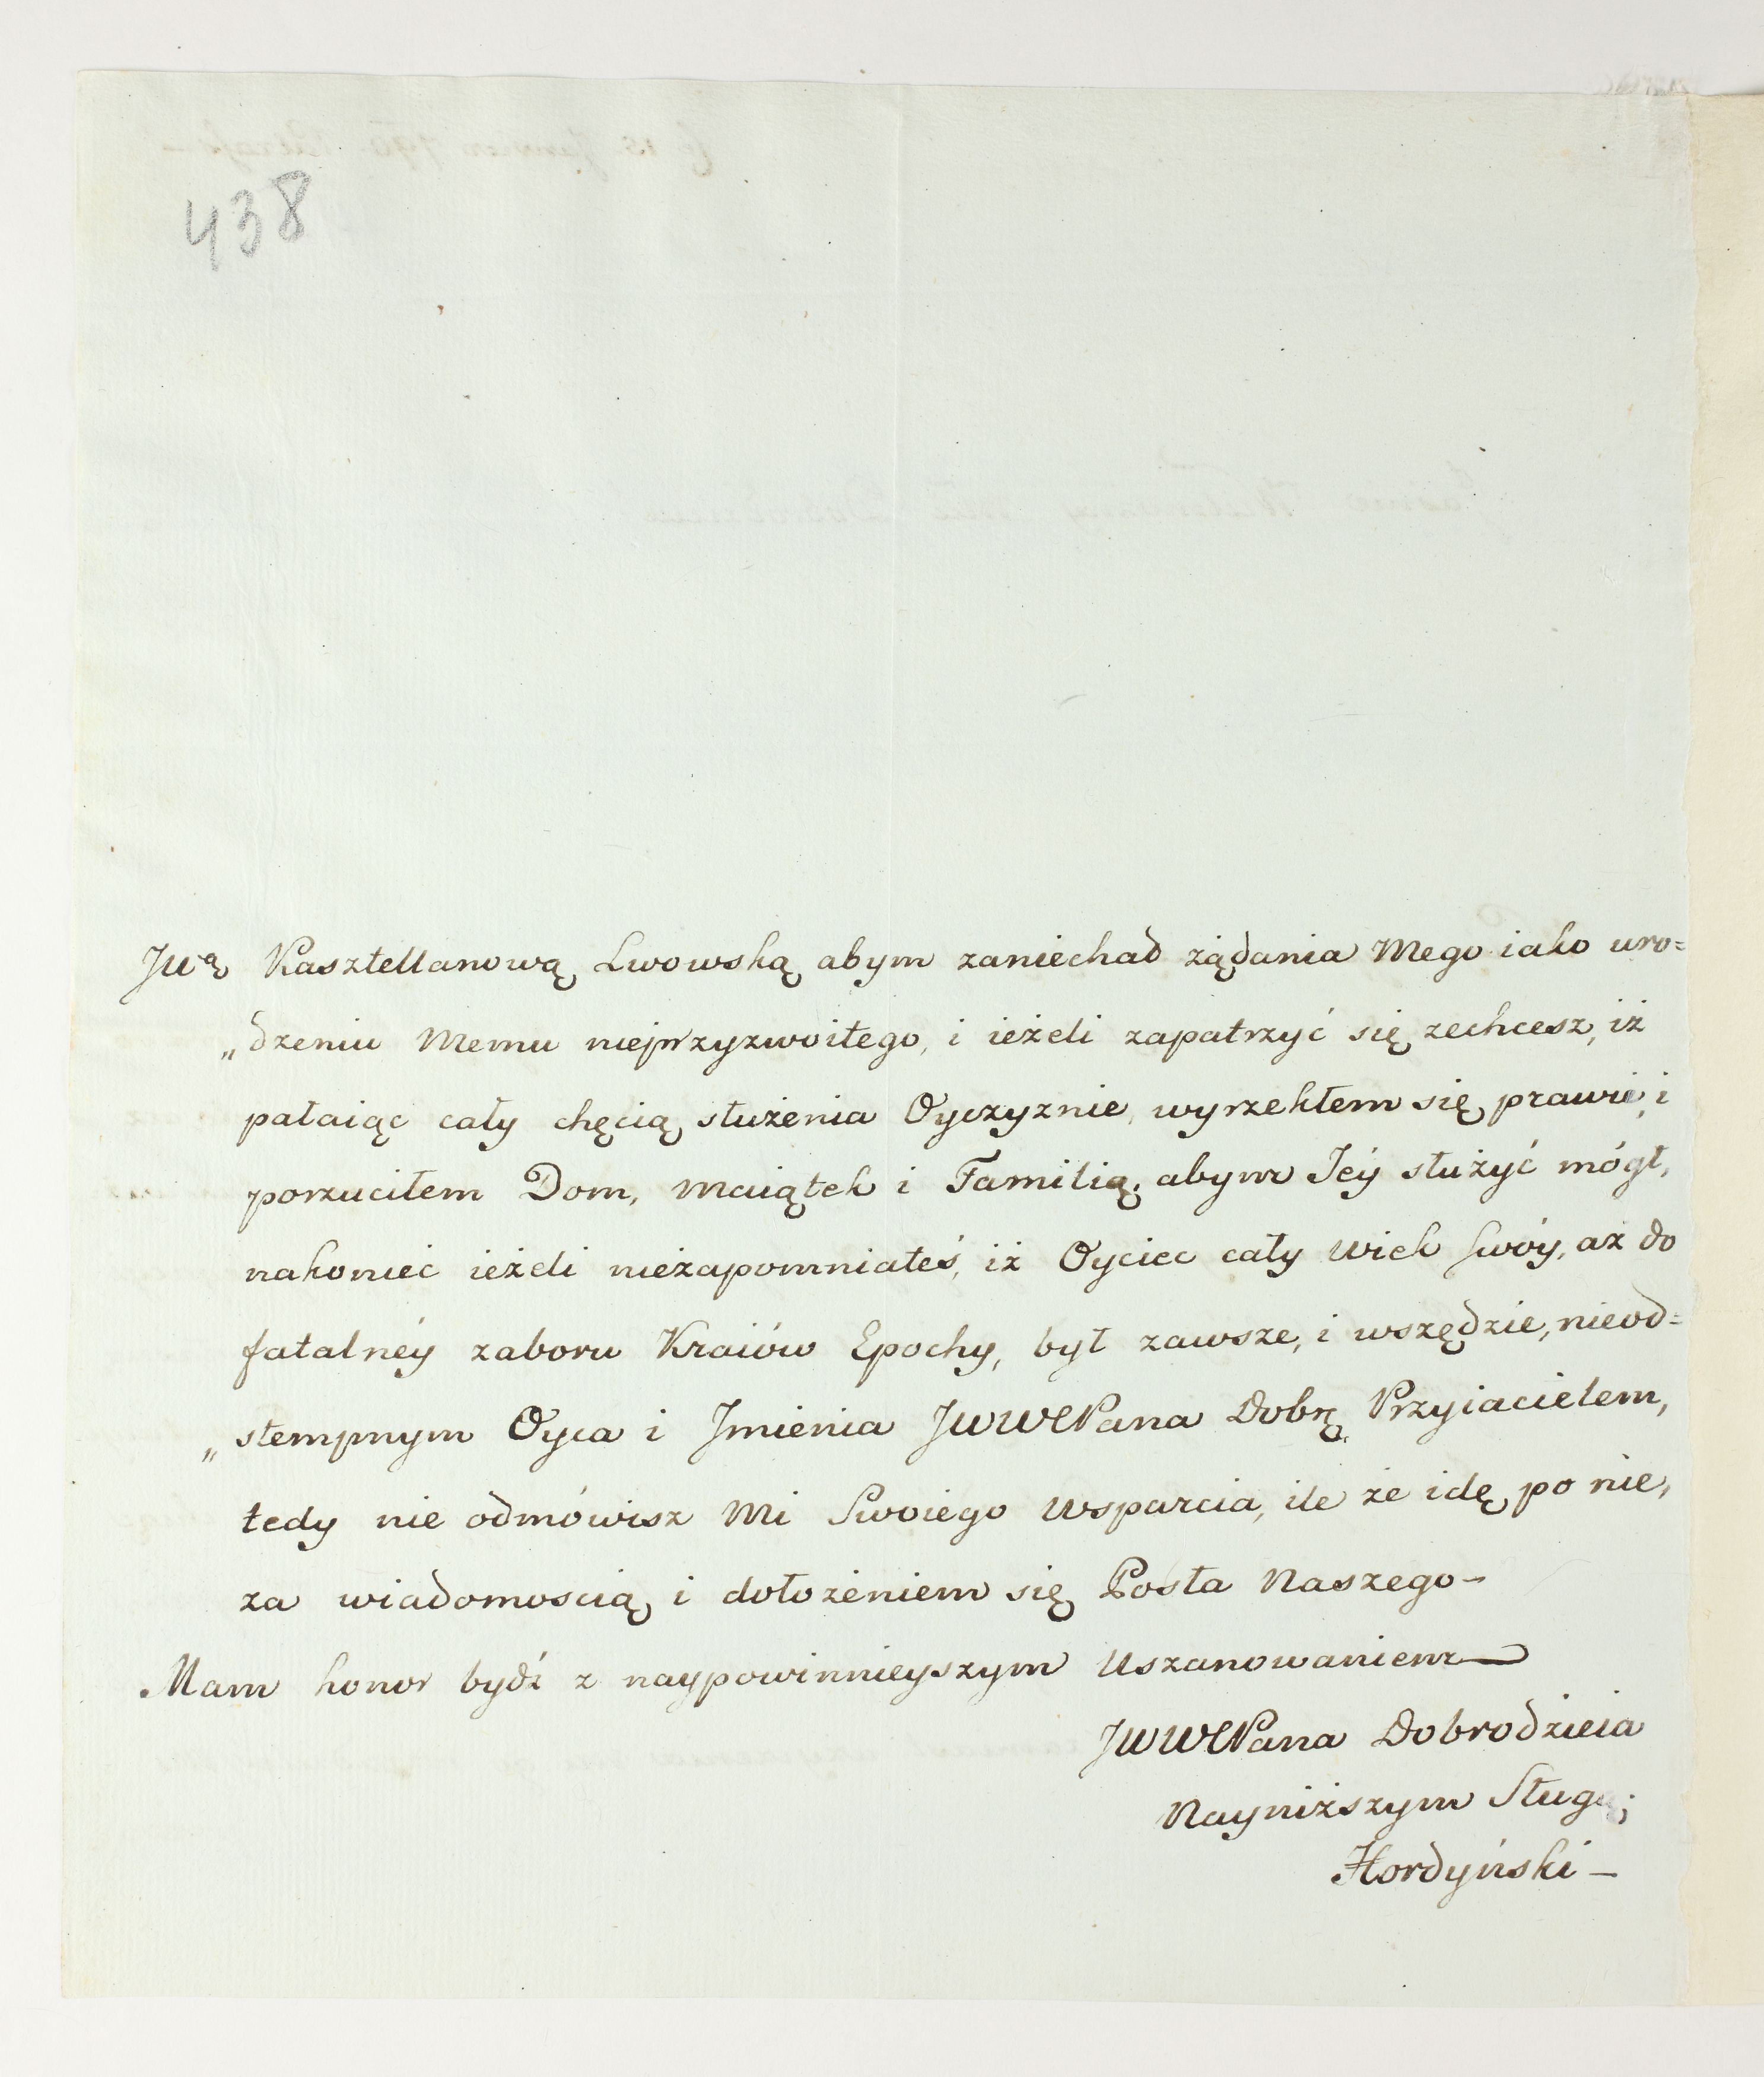 438
JWą Kasztellanową Lwowską abym zaniechał żądania Mego iako uro=
„dzeniu Memu nieprzyzwoitego, i ieżeli zapatrzyć się zechcesz, iż
pałaiąc cały chęcią służenia Oyczyznie, wyrzekłem się prawie, i
porzuciłem Dom, maiątek i Familią, abym Jéy służyć mógł,
nakoniec ieżeli niezapomniałeś, iż Oyciec cały wiek swóy, aż do
fatalnéy zaboru Kraiów Epochy, był zawsze, i wszędzie, nieod=
„stempnym Oyca i Jmienia JWWPana Dobrą Przyiacielem,
tedy nie odmówisz Mi Swoiego wsparcia, ile że idę po nie,
za wiadomoscią i dołożeniem się Posła Naszego-
Mam honor bydź z naypowinnieyszym Uszanowaniem
JWWPana Dobrodzieia
Nayniższym Sługą;
Hordyński -